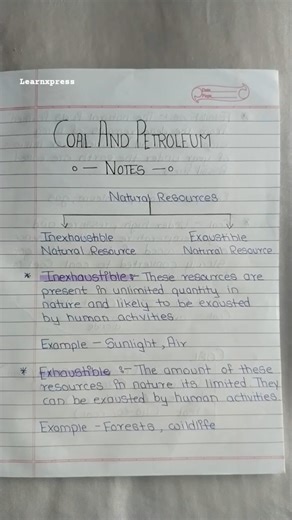 Learnxpress
COAL AND PETROLEUM
NOTES
Natural Resources
Inexhaustible Exaustible
Natural Resource Natural Resource
* Inexhaustible:- These resources are
present in unlimited quantity in
nature and likely to be exausted
by human activities.
Example - Sunlight, Air
* Exhaustible :- The amount of these
resources in nature its limited They
can be exausted by human activities.
Example - Forests, wildlife